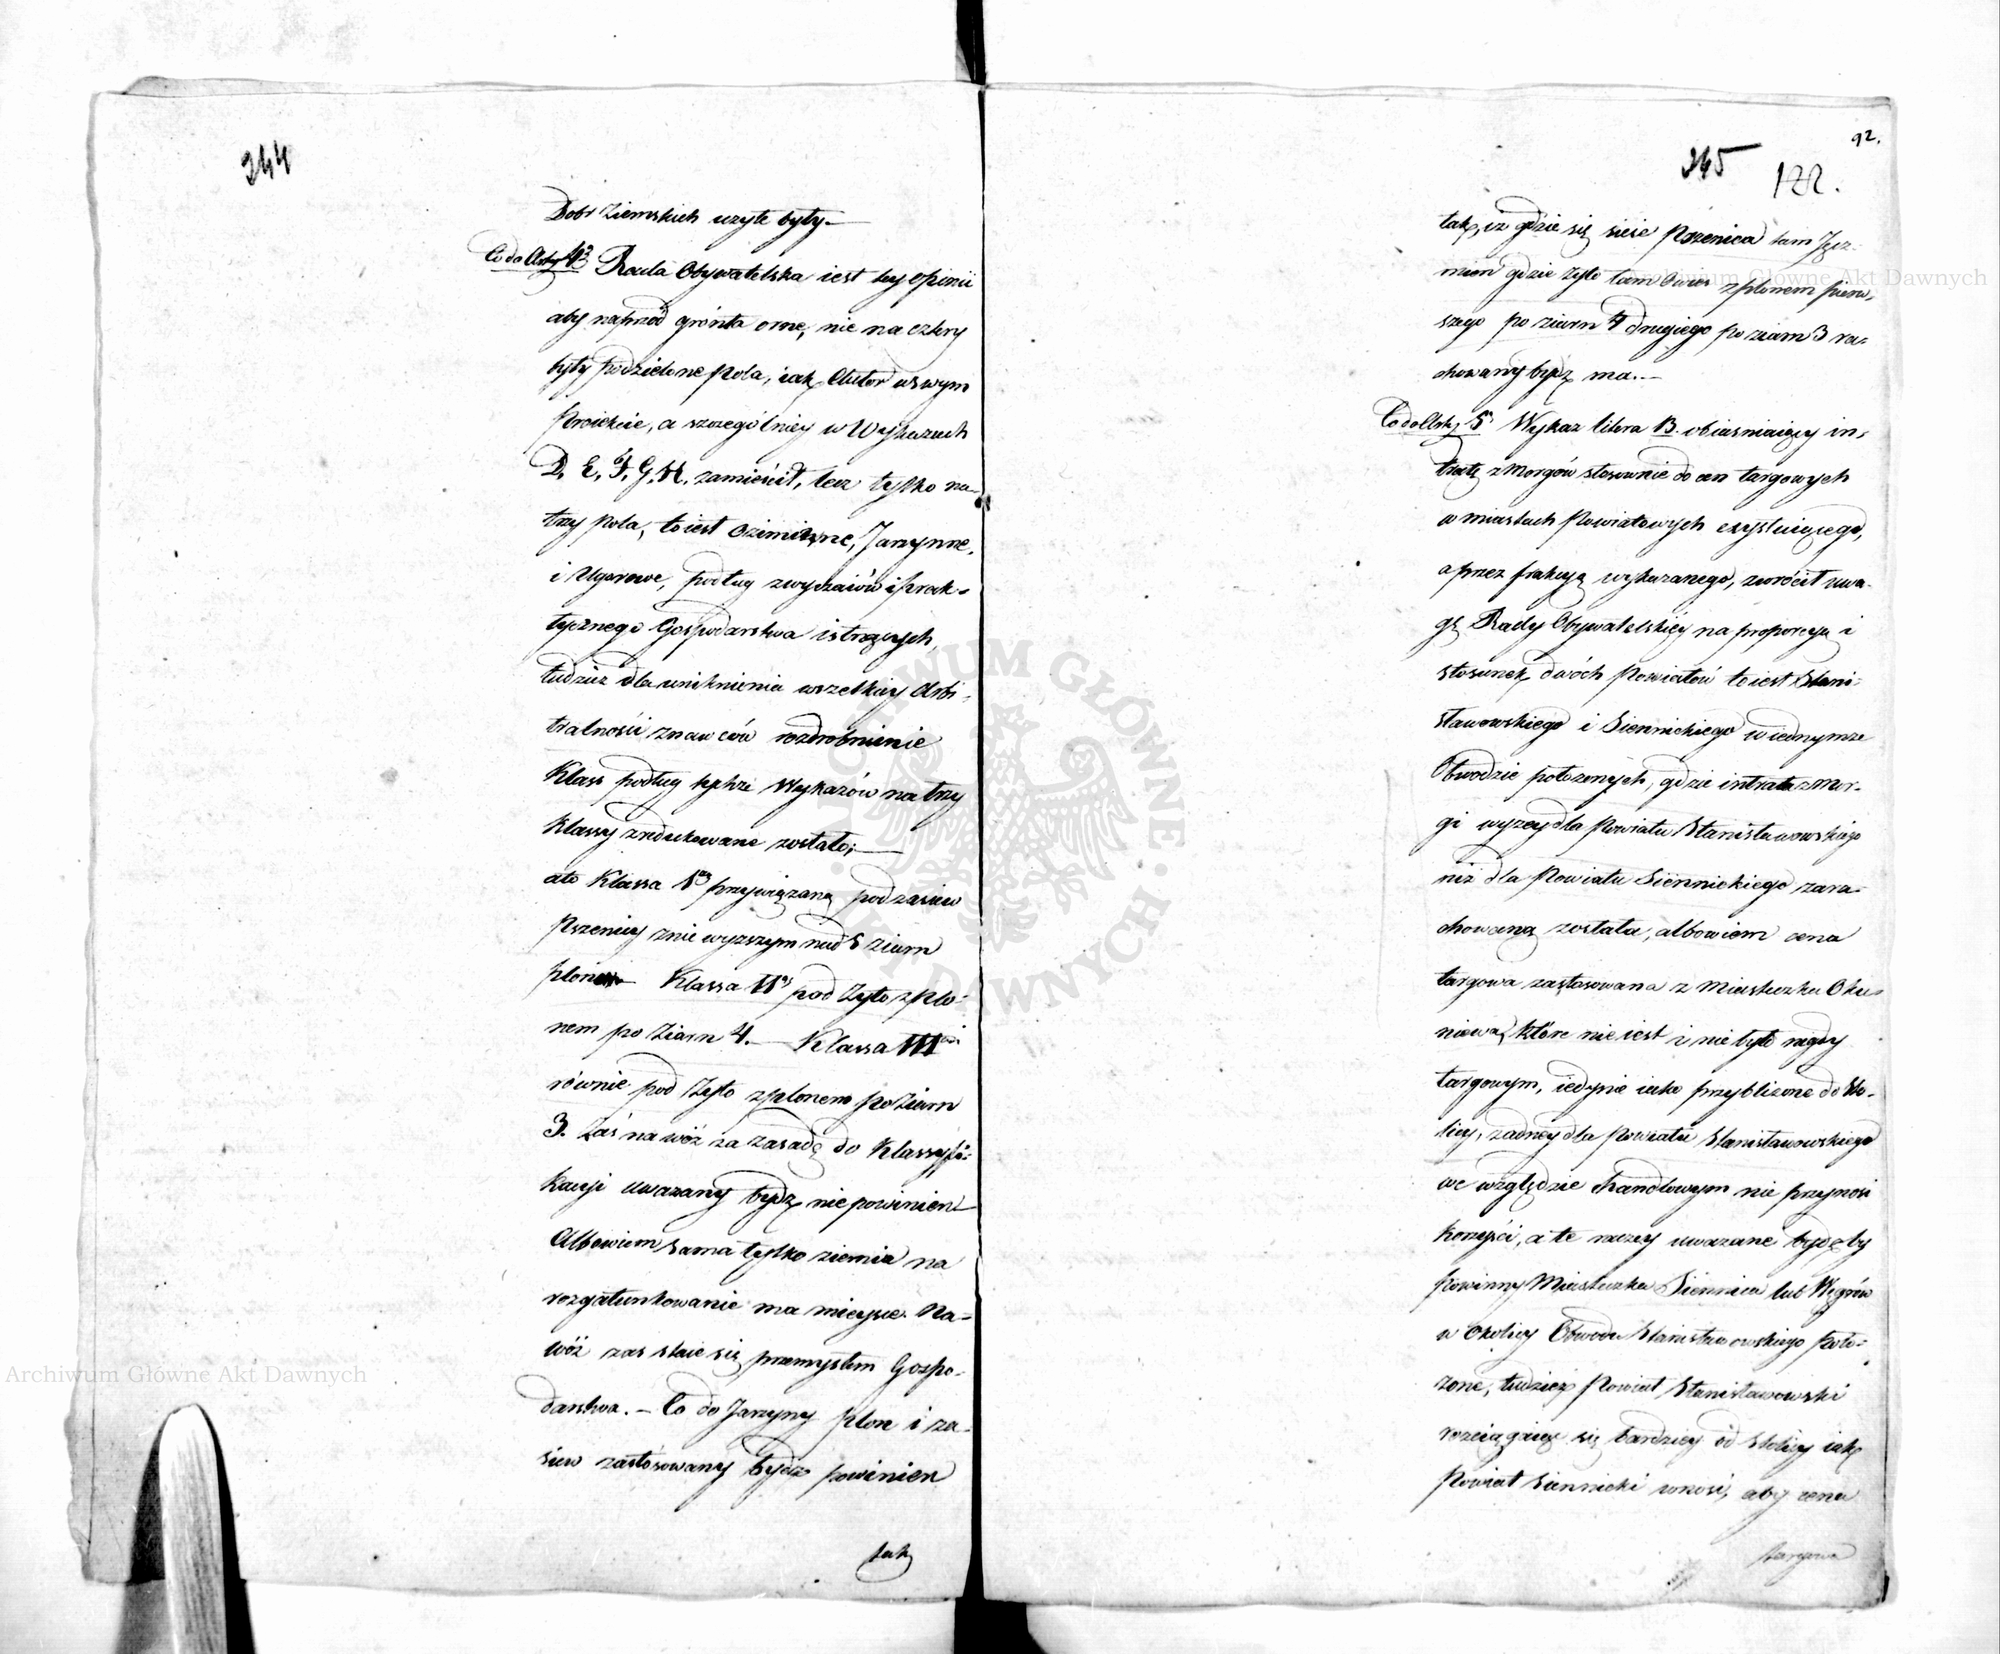 244
Dobr Ziemskich uzyte były.—
Co do Art. 4º Rada Obywatelska iest tey opinii
aby naprzód grónta orne, nie na cztery
były podzielone pola, iak Autor w swym
Proiekcie, a szczególniey w Wykazach
D. E. F. G. H. zamieścił, lecz tylko na
trzy pola, to iest Ozimienne, Jarzynne,
i Ugorowe, podług zwyczaiów i prak-
tycznego Gospodarstwa istnących,
tudzież dla uniknienia wszelkiey Arbi-
tralności znawców rozdrobnienie
Klass podług tychże Wykazów na trzy
Klassy zredukowane zostało;—
a to Klassa 1ª przywiązaną pod zasiew
Pszenicy z nie wyższym nad 5 ziarn
plonem Klassa IIª pod Zyto z plo-
nem po Ziarn 4.— Klassa III
równie pod Zyto z plonem po Ziarn
3. Zaś nawóz za zasadę do Klassyfi-
kacyi uwazany bydź nie powinien
Albowiem sama tylko ziemia na
rozgatunkowanie ma mieysce. Na-
wóz zaś staie się przemysłem Gospo-
darstwa.— Co do Jarzyny plon i za-
siew zastosowany bydź powinien
tak
92.
245
122.
tak, iz gdzie się sieie Pszenica tam Jęcz-
mień gdzie Zyto tam Owies z plonem pierw-
szego po ziarn 4 drugiego po ziarn 3 ra-
chowany bydź ma.—
Co do Art. 5º Wykaz litera B. obiasniaiący in-
tratę z Morgów stosownie do cen targowych
w miastach Powiatowych exystuiącego,
a przez frakcyą wykazanego, zwrócił uwa-
gę Rady Obywatelskiey na proporcyą i
stosunek dwóch Powiatów to iest Stani-
sławowskiego i Siennickiego w iednymze
Obwodzie połozonych, gdzie intrata z Mor-
gi wyzey dla Powiatu Stanisławowskiego
niż dla Powiatu Siennickiego zara-
chowaną została, albowiem cena
targowa zastosowana z Miasteczka Oku-
niewa, które nie iest i nie było nigdy
targowym, iedynie iako przyblizone do Sto-
licy, zadney dla Powiatu Stanisławowskiego
we względzie Handlowym nie przynosi
korzyści, a te raczey uwazane bydźby
powinny Miasteczka Siennica lub Węgrów
w okolicy Obwodu Stanisławowskiego poło-
zone, tudzież Powiat Stanisławowski
rozciągaiąc się bardziey od Stolicy iak
Powiat Siennicki wnosi, aby cena
targowa
Archiwum Główne Akt Dawnych
Archiwum Główne Akt Dawnych
ARCHIWUM GŁÓWNE · AKT DAWNYCH ·